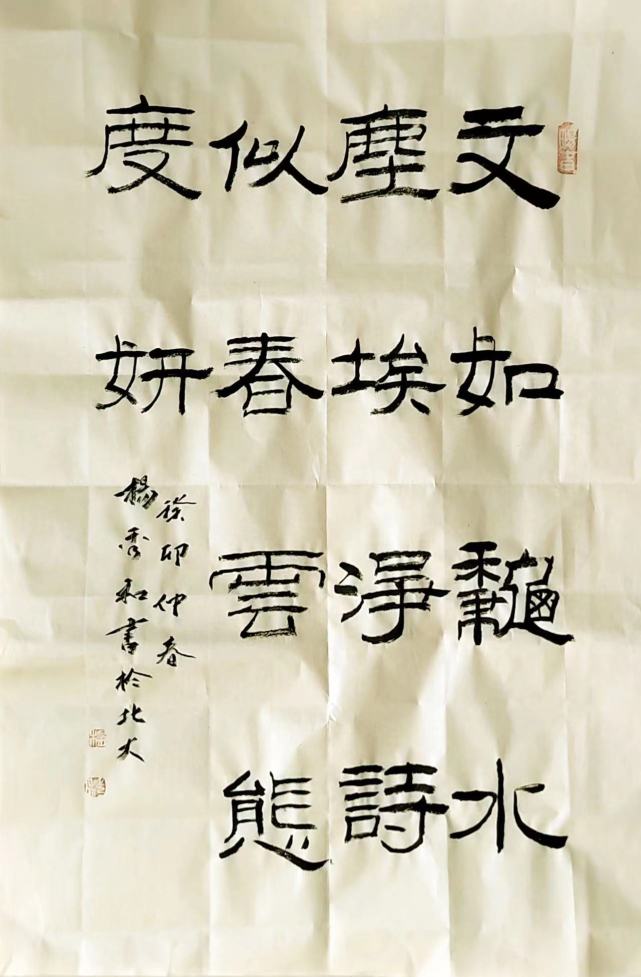 文如龝水
塵埃淨詩
似春雲態
度妍
癸卯仲春
楊秀和書於北大